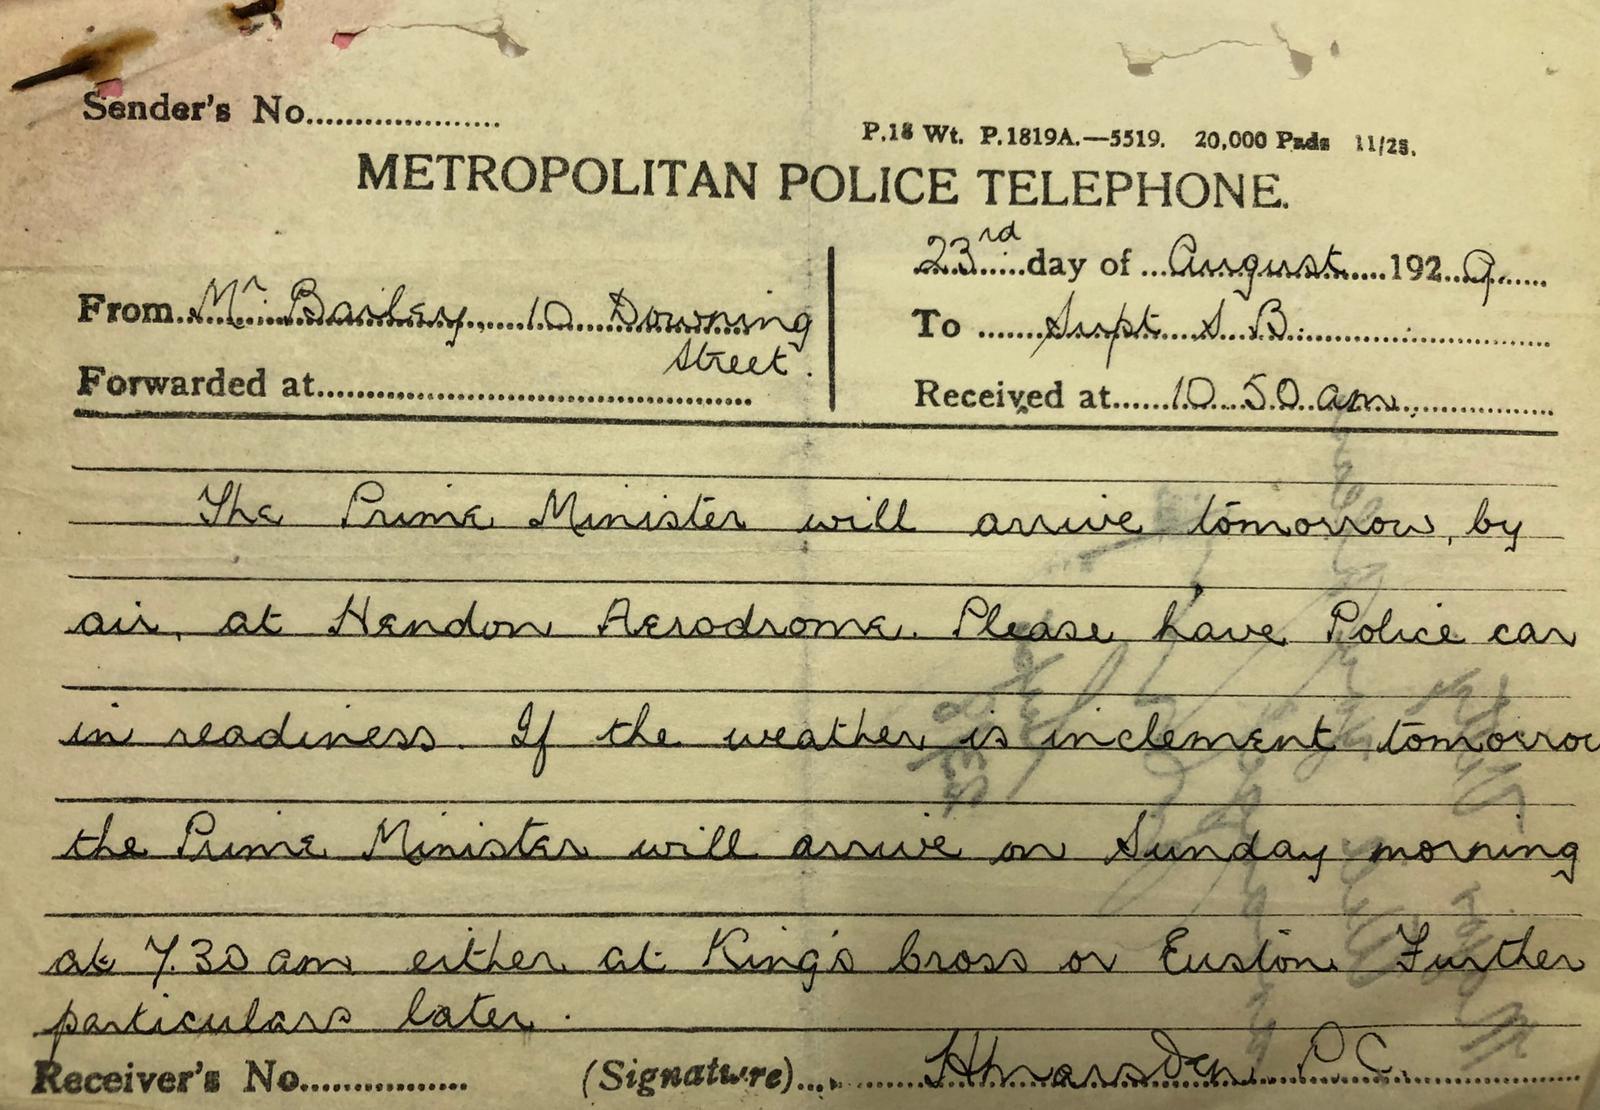 Sender's No....................
P.18 Wt. P.1819A.—5519. 20,000 Pads 11/28.
METROPOLITAN POLICE TELEPHONE.
23rd day of August 1929
From Mr. Bailey, 10 Downing
Street.
To Supt S.B.
Forwarded at....................
Received at 10.50 am.
The Prime Minister will arrive tomorrow, by
air, at Hendon Aerodrome. Please have Police car
in readiness. If the weather is inclement tomorrow
the Prime Minister will arrive on Sunday morning
at 7.30 am either at King's Cross or Euston. Further
particulars later.
Receiver's No................
(Signature) HMarsden P.C.